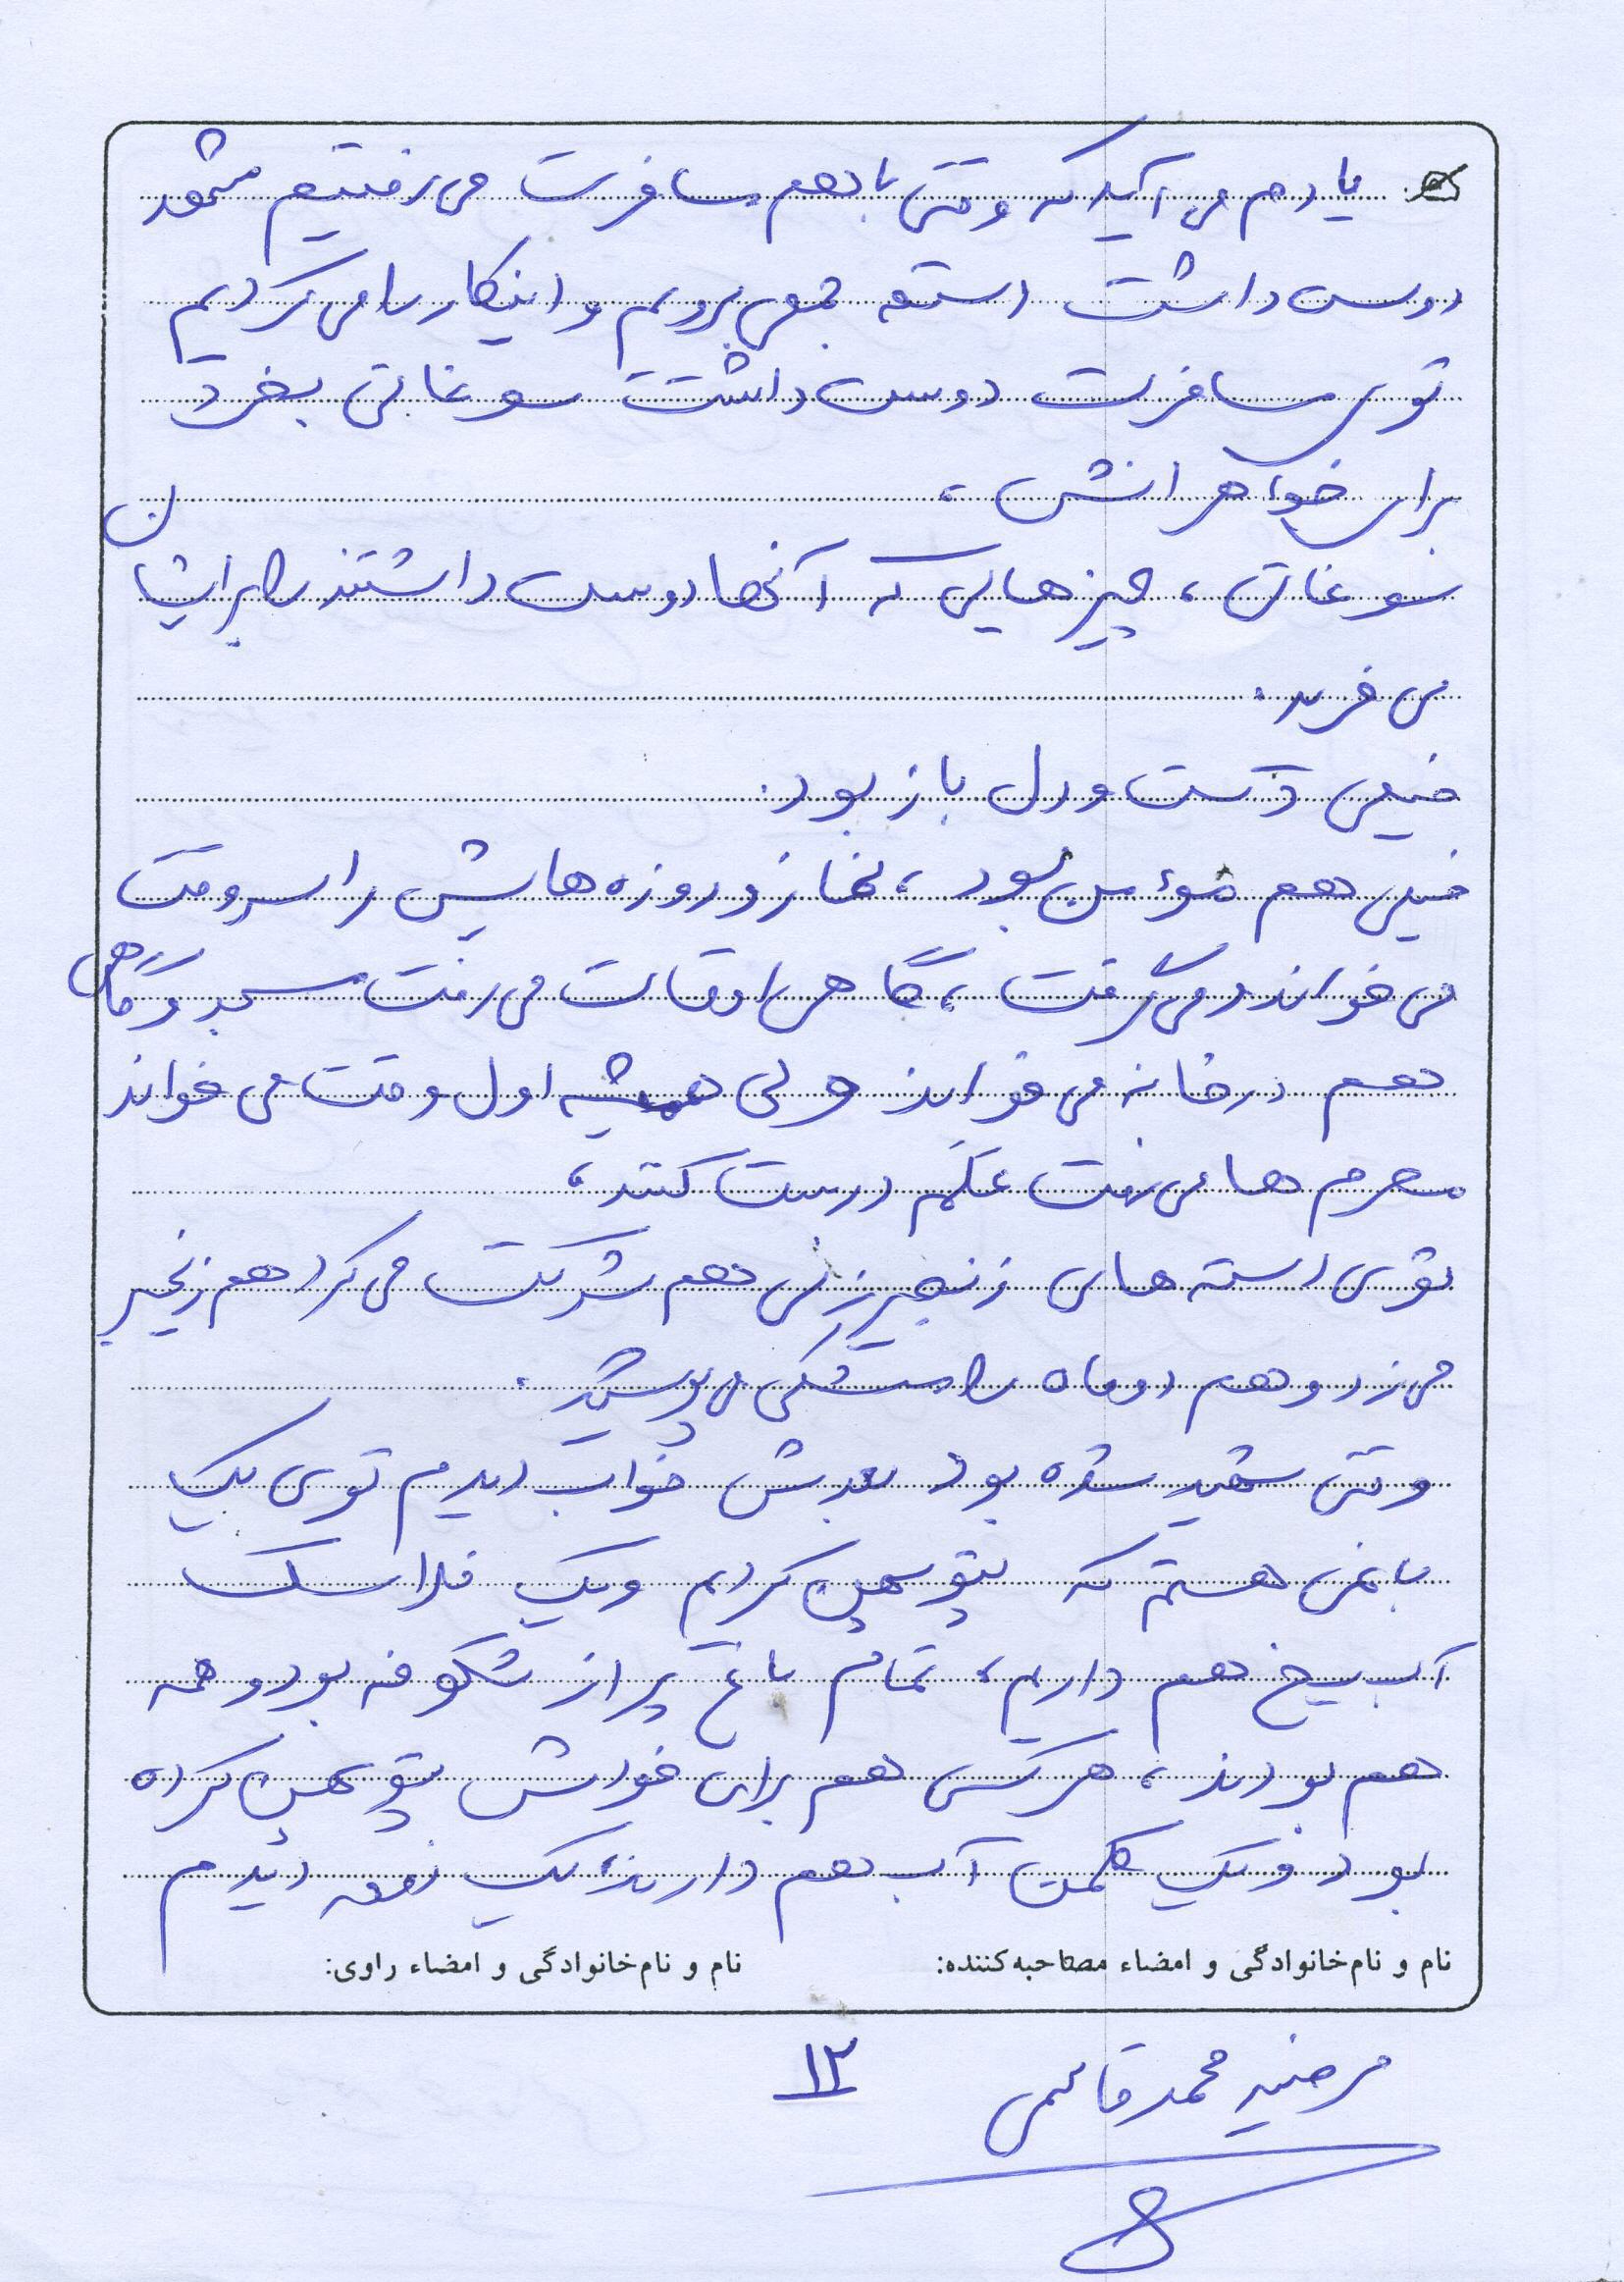 یادم می آید که وقتی باهم مسافرت می رفتیم
دوست داشت دسته جمعی برویم و اینکار را می کردیم
توی مسافرت دوست داشت سوغاتی بخرد
برای خواهرانش ،
سوغاتی ، چیزهایی که آنها دوست داشتند را برایشان
می خرید .
خیلی دست و دل باز بود .
خیلی هم مؤمن بود ، نماز و روزه هایش را سر وقت
می خواند و می گرفت ، گاهی اوقات می رفت مسجد و گاهی
هم در خانه می خواند ولی همیشه اول وقت می خواند
محرم ها می رفت عَلَم درست کنند ،
توی دسته های زنجیرزنی هم شرکت می کرد هم زنجیر
می زد و هم دو ماه را مشکی می پوشید .
وقتی شهید شده بود بعدش خواب دیدم توی یک
باغی هستم که پتو پهن کردیم و یک فلاسک
آب یخ هم داریم ، تمام باغ پر از شکوفه بود و همه
هم بودند ، هر کسی هم برای خودش پتو پهن کرده
بود و یک کلمن آب هم دارند ، یک دفعه دیدم
نام و نام خانوادگی و امضاء مصاحبه کننده: نام و نام خانوادگی و امضاء راوی:
مرضیه محمدقاسمی
۱۲